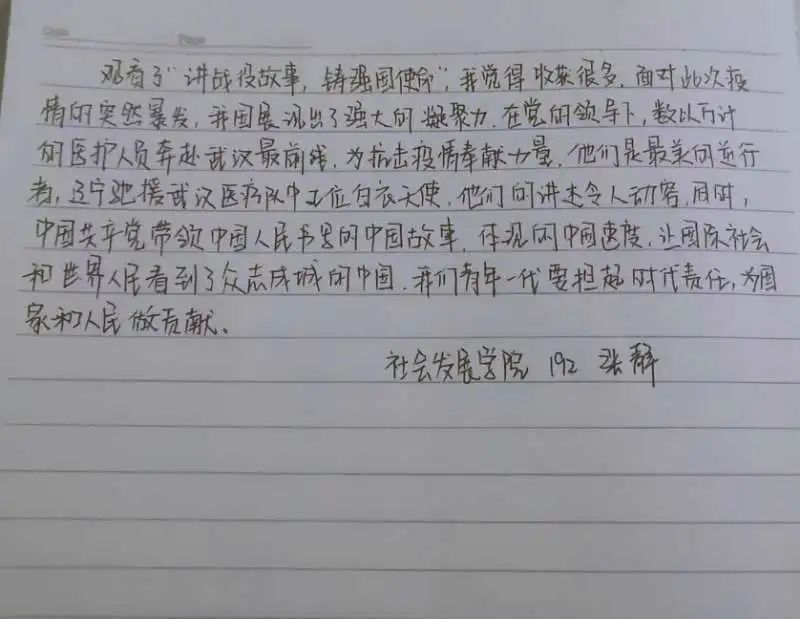 Date Page
观看了“讲战役故事，铸强国使命”，我觉得收获很多。面对此次疫
情的突然暴发，我国展现出了强大的凝聚力。在党的领导下，数以万计
的医护人员奔赴武汉最前线，为抗击疫情奉献力量，他们是最美的逆行
者，辽宁驰援武汉医疗队中五位白衣天使，他们的讲述令人动容，同时，
中国共产党带领中国人民书写的中国故事，体现的中国速度，让国际社会
和世界人民看到了众志成城的中国。我们青年一代要担起时代责任，为国
家和人民做贡献。
社会发展学院 192 张静